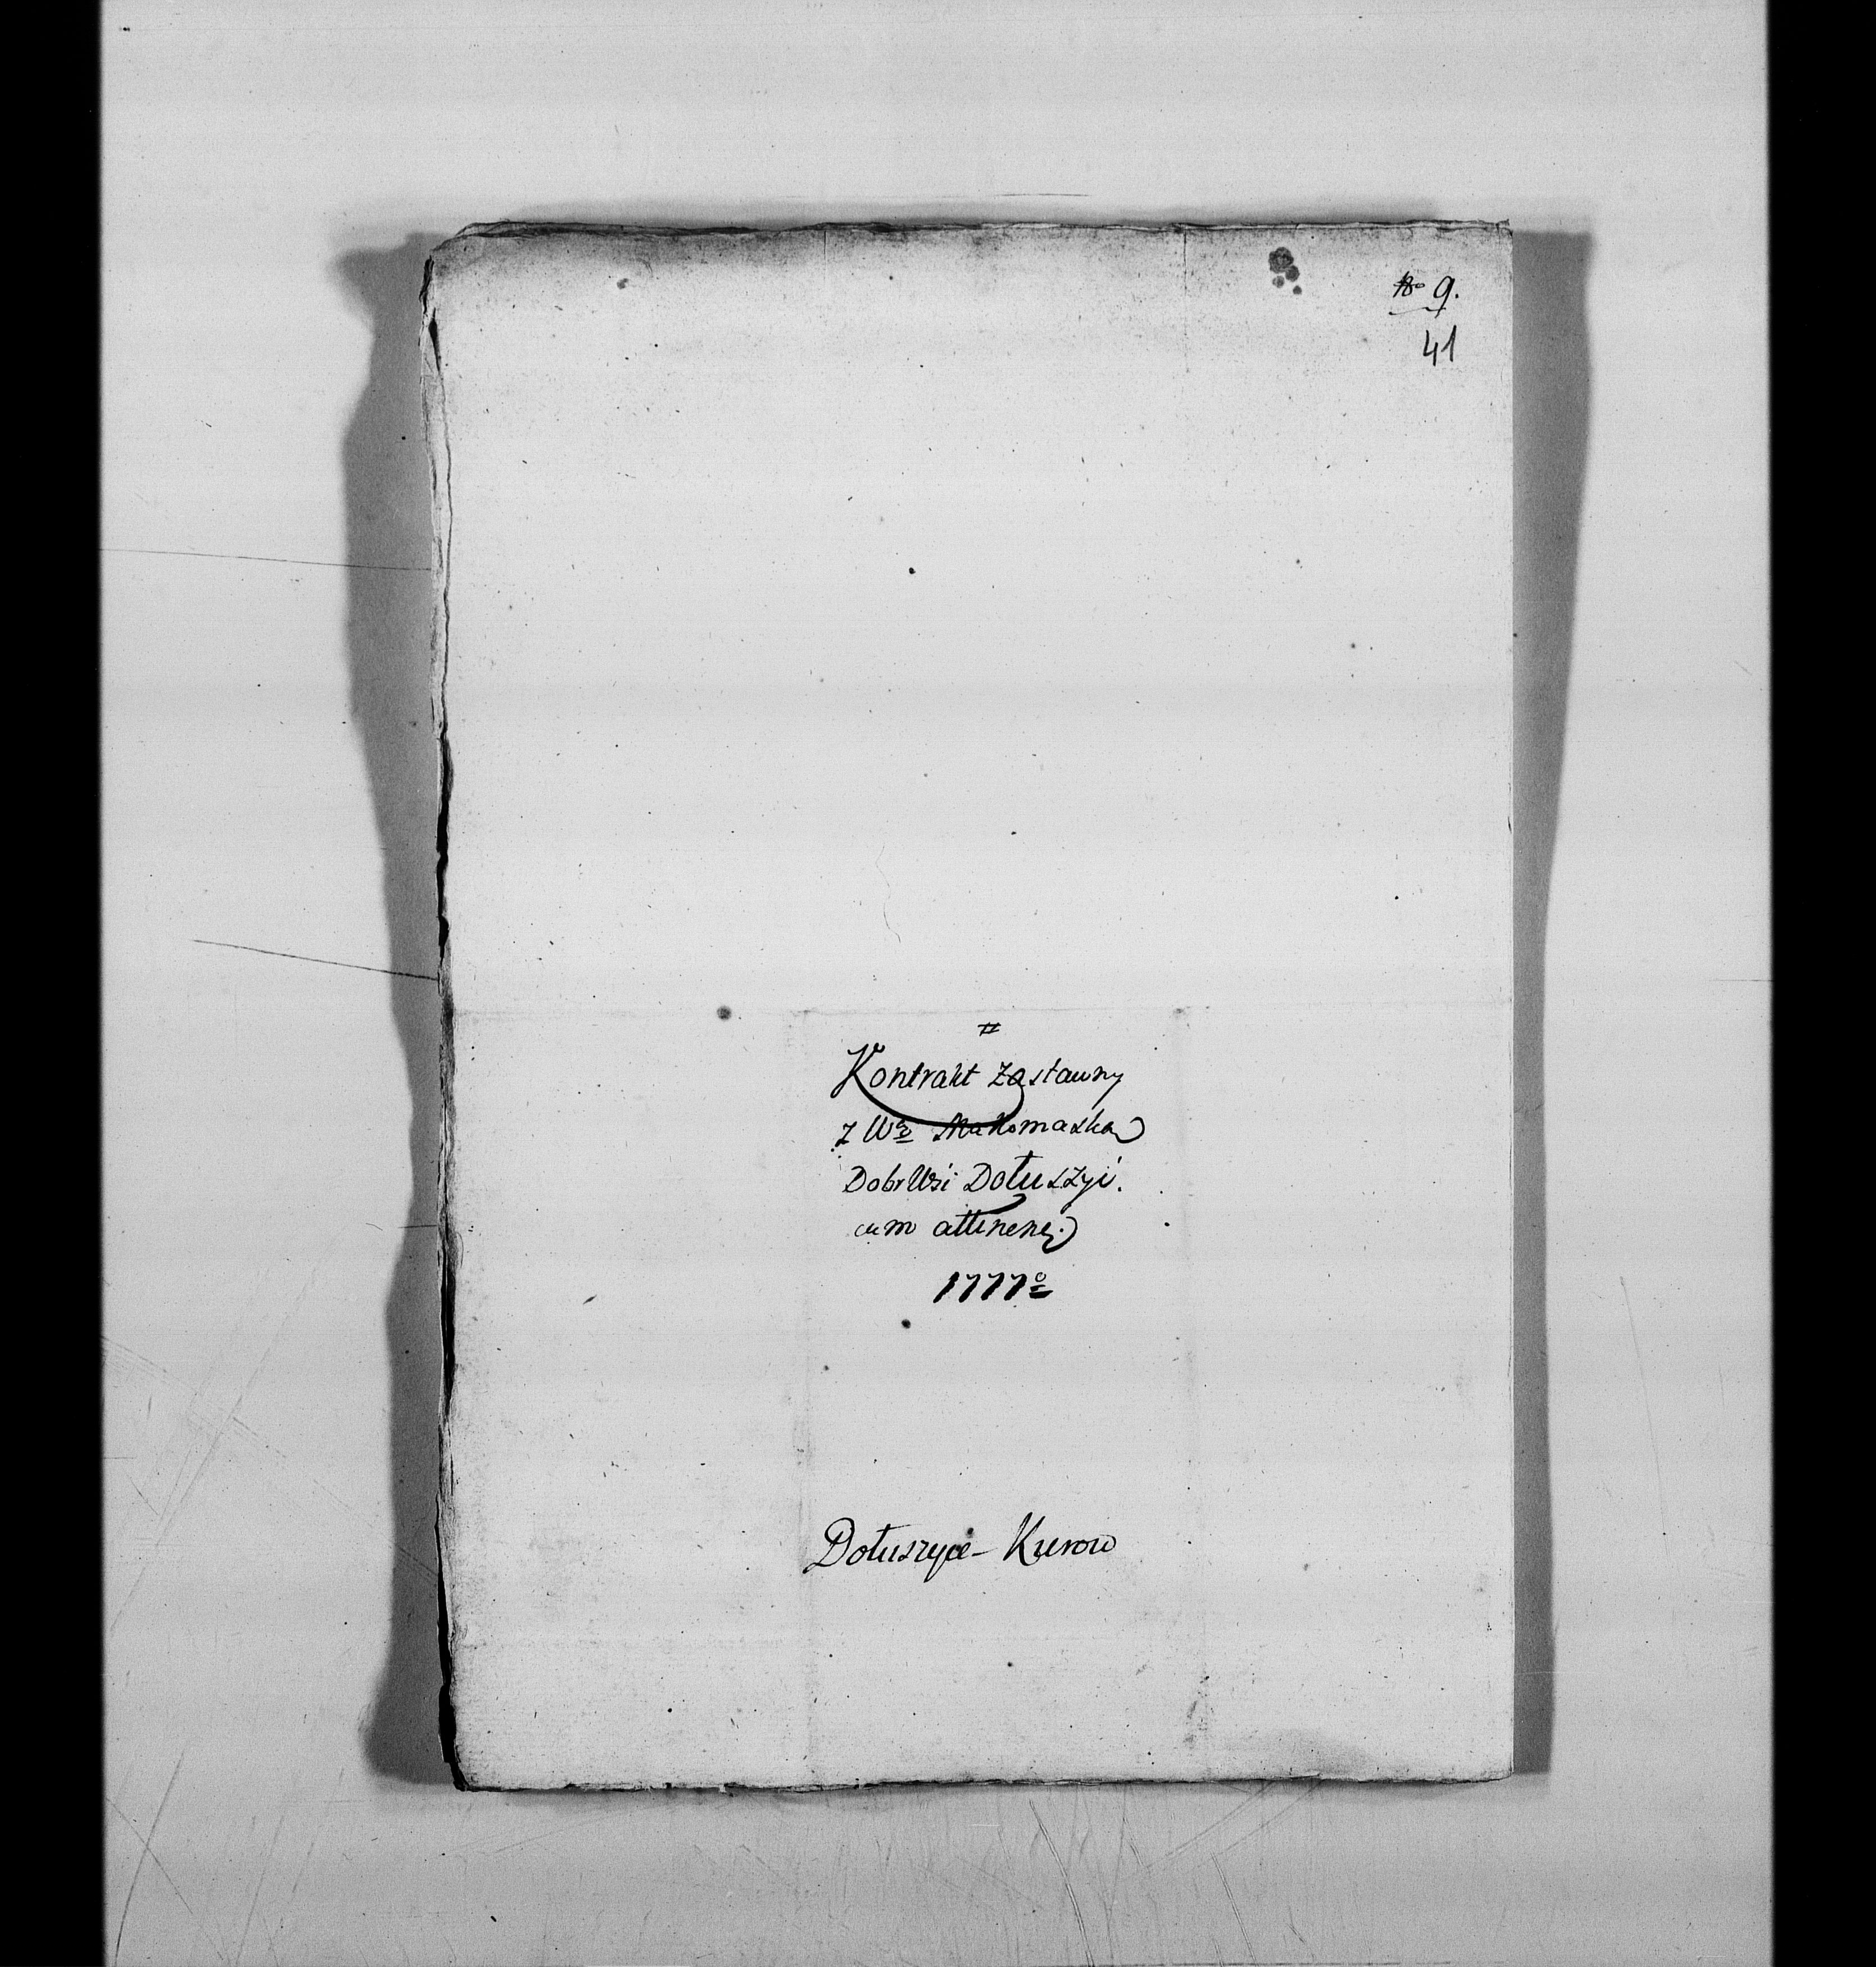 No 9.
41
#
Kontrakt zastawny
z Wą Makomaską
Dobr Wsi Dołuszyć.
cum attinen.
1777o
Dołuszyce - Kurow